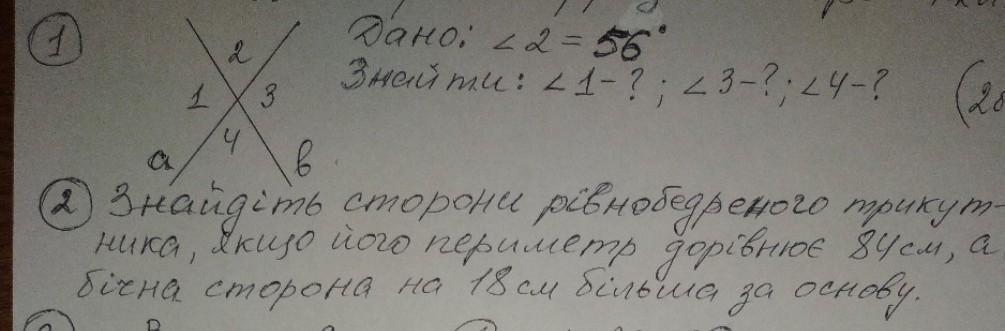 ① Дано: ∠2 = 56°
2
1 3
Знайти: ∠1-?; ∠3-?; ∠4-? (2
4
а в
② Знайдіть сторони рівнобедреного трикут-
ника, якщо його периметр дорівнює 84см, а
бічна сторона на 18см більша за основу.